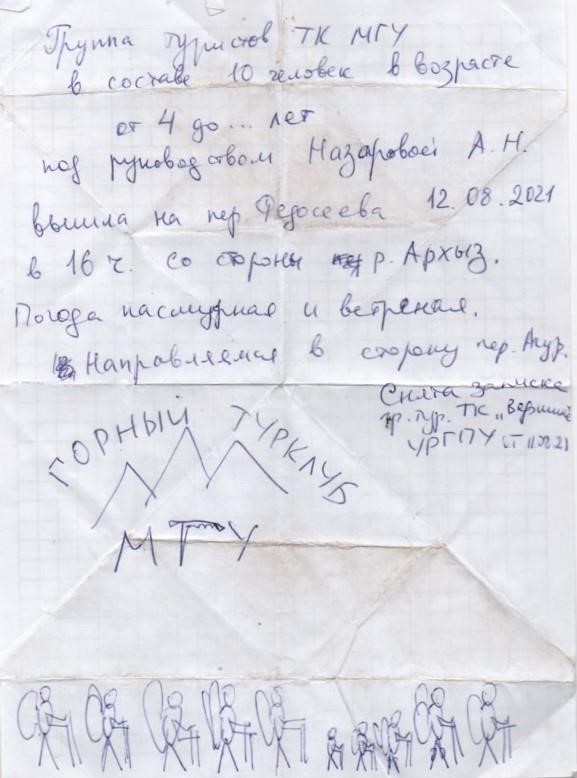 Группа туристов ТК МГУ
в составе 10 человек в возрасте
от 4 до ... лет
под руководством Назаровой А.Н.
вышла на пер. Федосеева 12.08.2021
в 16 ч. со стороны р. Архыз.
Погода пасмурная и ветреная.
Направляемся в сторону пер. Агур.
Снята записка
гр. тур. ТК „Вершина"
УРГПУ
ГОРНЫЙ ТУРКЛУБ
МГУ